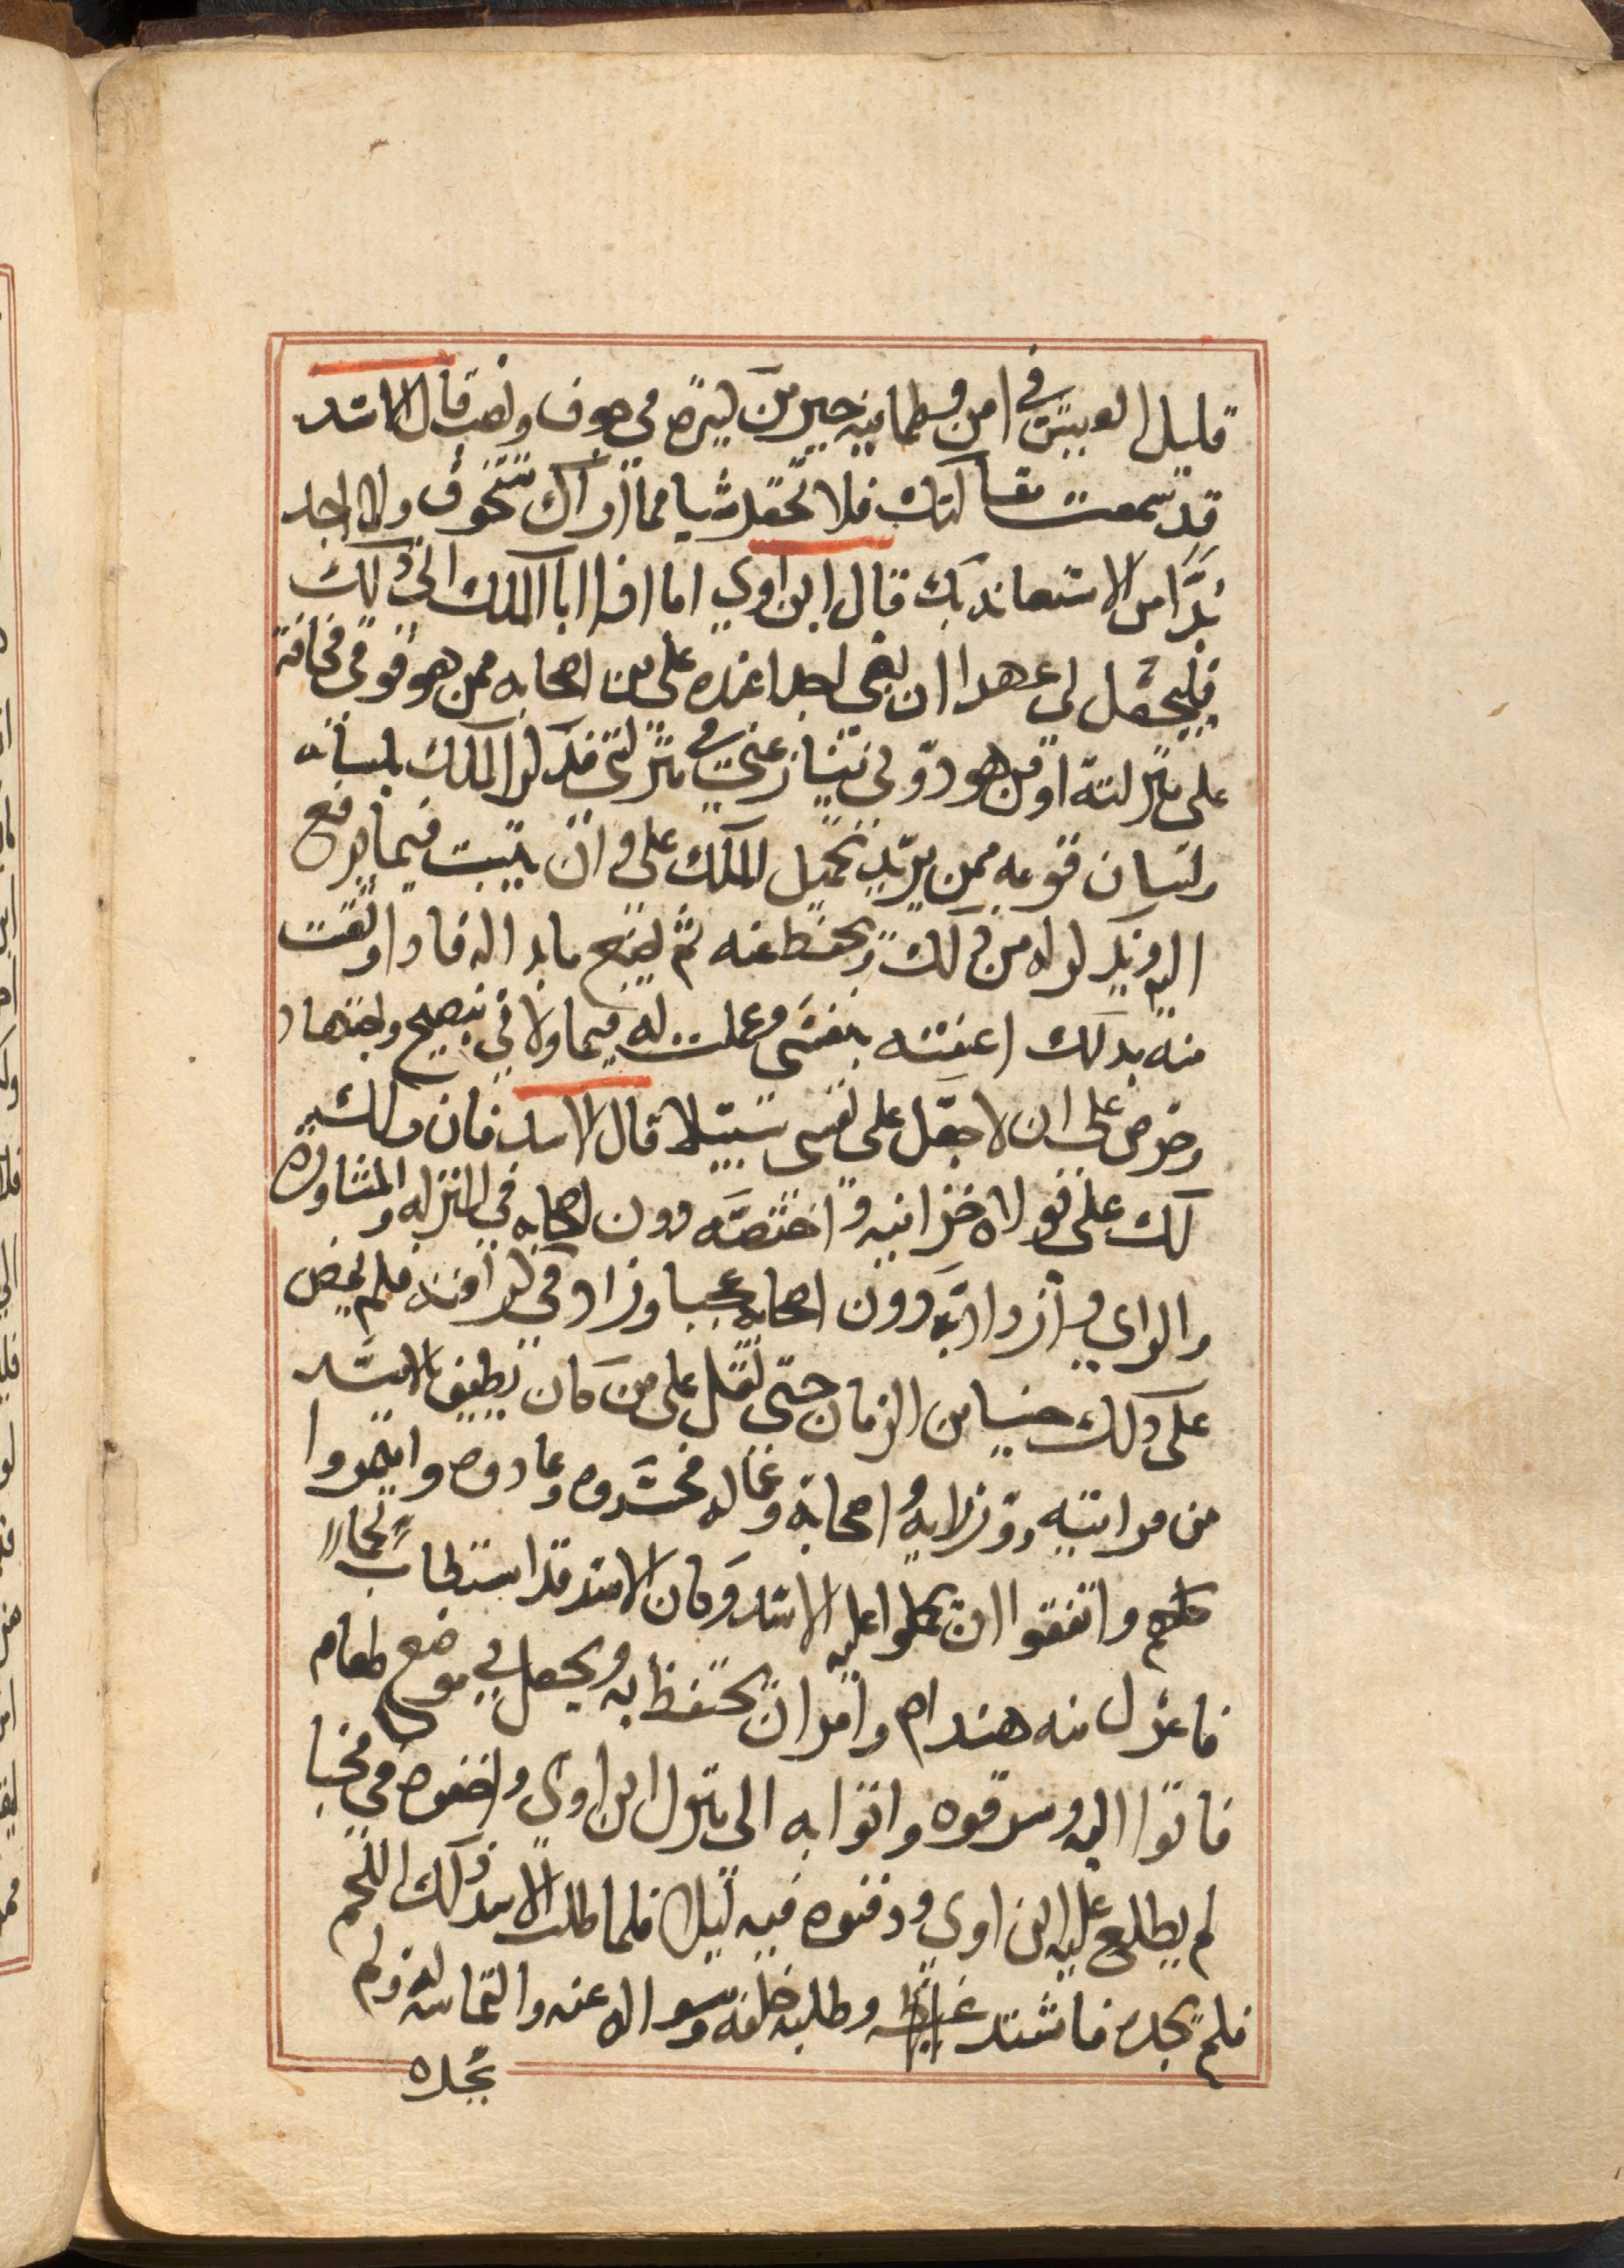 قليل العيش في امن وطمانينه خير من كثيره في خوف ونصب قال الاسد
قد سمعت مقالتك فلا تحقد شيا مما اراك تتخوف ولا اجد
بدًّا من الاستعانه بك قال ابن اوي اما اذا ابا الملك الي ذلك
فليجعل لي عهدا ان بغي احدا عنده علي من اصحابه ممن هو فوقي مخافة
علي منزلته او من هو دوني تنازعني في منزلتي فذكر الملك بلسانه
ولسان قومه ممن يريد تحميل الملك علي ان يثبت فيما يرفع
اليه ويذكر له من ذلك ويحفظ عنه ثم ليضع ما بدا له فاذا وثقت
منه بذلك اعنته بنفسي وعملت له فيما ولاني بنصح واجتهاد
وحرص علي ان لا جعل علي نفسي سبيلا قال الاسد فان ذلك
لك علي فولاه خزانيه واختصه دون اصحابه في المنزله والمشاوره
والراي وازداد به دون اصحابه عجبا وزاد في كرامته فلم يمض
علي ذلك حينا من الزمان حتي ثقل علي من كان يطيف بالاسد
من مرابتيه وقرنايه واصحابه وعماله فحسدوه وعادوه وايتمروا
كلهم واتفقوا ان يحملوا عليه الاسد وكان الاسد قد استطاب لحما
فاعزل منه هندام وامر ان يحتفظ به ويجعل في موضع طعام
فاتوا اليه وسرقوه واتوا به الي منزل ابن اوي واخفوه في مخبا
لم يطلع عليه ابن اوي ودفنوه فيه ليلا فلما طلب الاسد ذلك اللحم
فلم يجده فاشتد وطلبه خلفه وسواله عنه والتماسه له ولم
يجده